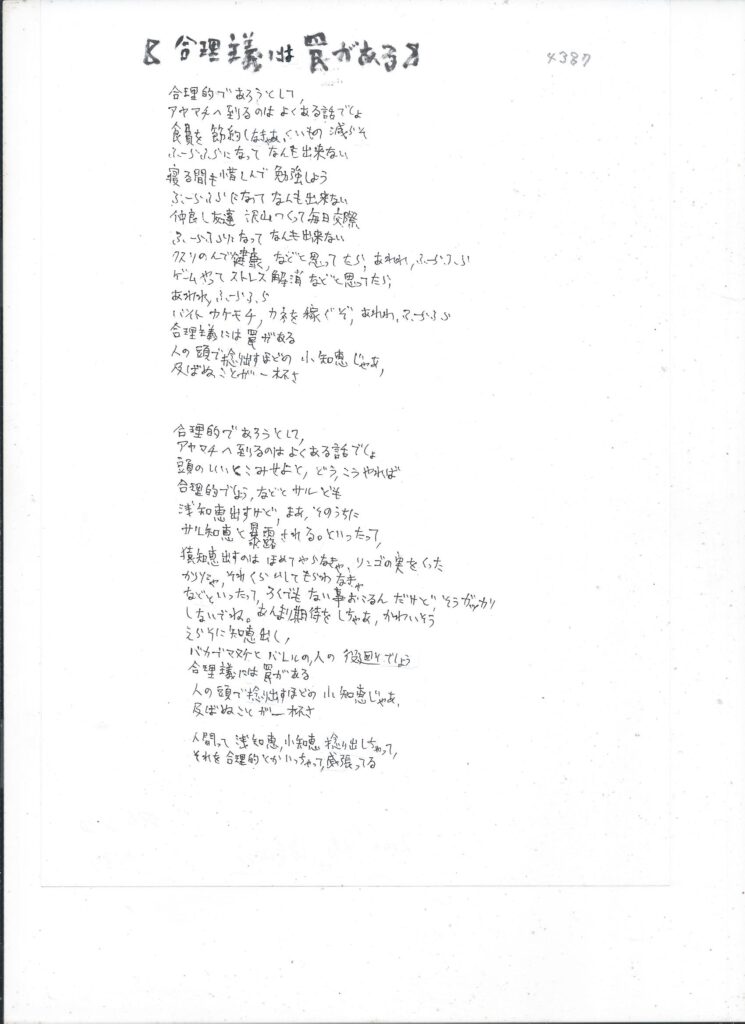 【合理主義には罠がある】
4387
合理的であろうとして、
アヤマチへ到るのは よくある話でしょ
食費を 節約しなきゃあ、くいもの 減らそ
ふーらふらになって なんも出来ない
寝る間も惜しんで 勉強しよう
ふーらふらになって なんも出来ない
仲良し友達 沢山つくって毎日交際
ふーらふらになって なんも出来ない
クスリのんで健康、などと思ってたら、あわわわ、ふーらふら
ゲームやってストレス解消などと思ってたら、
あわわわ、ふーらふら
バイトカケモチ、カネを稼ぐぞ、あわわわ、ふーらふら
合理主義には罠がある
人の頭で捻り出すほどの 小知恵じゃあ、
及ばぬことが一杯さ
合理的であろうとして、
アヤマチへ到るのはよくある話でしょ
頭のいいとこみせよと、どう、こうやれば
合理的でしょう、などとサルども
浅知恵出すけど、まあ、そのうちに
サル知恵と暴露される。といったって、
猿知恵出すのは ほめてやらなきゃ、リンゴの実をくった
からにゃ、それくらいしてもらわなきゃ
などといったって、ろくでもない事おこるんだけど、そうガッカリ
しないでね。あんまり期待をしちゃあ、かわいそう
えらそに知恵出し、
バカでマヌケとバレルの、人の役回りでしょう
合理主義には罠がある
人の頭で捻り出すほどの 小知恵じゃあ、
及ばぬことが一杯さ
人間って 浅知恵、小知恵 捻り出しちゃって、
それを合理的とかいっちゃって、威張ってる